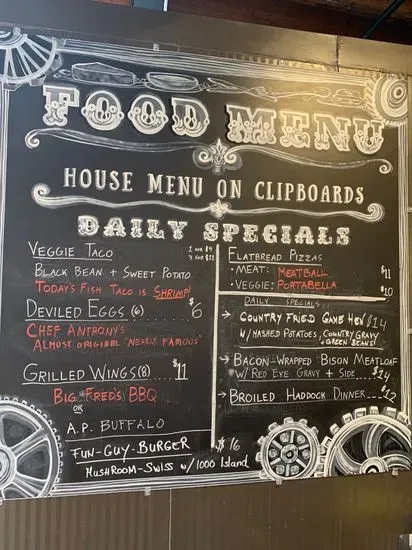 FOOD MENU
HOUSE MENU ON CLIPBOARDS
DAILY SPECIALS
VEGGIE TACO 1 FOR $4
3 FOR $11
BLACK BEAN + SWEET POTATO
TODAY'S FISH TACO IS SHRIMP!
DEVILED EGGS (6) $6
CHEF ANTHONY'S
ALMOST ORIGINAL "NEARLY FAMOUS"
GRILLED WINGS (8) $11
BIG FRED'S BBQ
OR
A.P. BUFFALO
FUN-GUY-BURGER $16
MUSHROOM-SWISS w/ 1000 Island
FLATBREAD PIZZAS
• MEAT: MEATBALL $11
• VEGGIE: PORTABELLA $10
DAILY SPECIALS
→ COUNTRY FRIED GAME HEN $14
W/ MASHED POTATOES, COUNTRY GRAVY,
+ GREEN BEANS!
→ BACON-WRAPPED BISON MEATLOAF
W/ RED EYE GRAVY + SIDE $14
→ BROILED HADDOCK DINNER $12